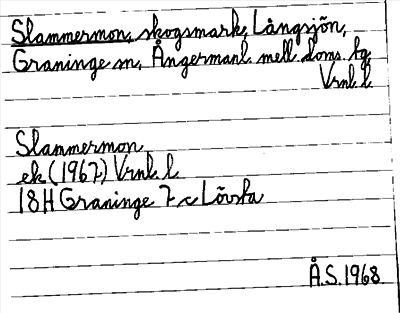 Slammermon, skogsmark, Långsjön,
Graninge sn, Ångermanl. mell. doms. tg
Vrnl. l.
Slammermon
ek (1967) Vrnl. l
18H Graninge 7 c Lövsta
Å.S. 1968